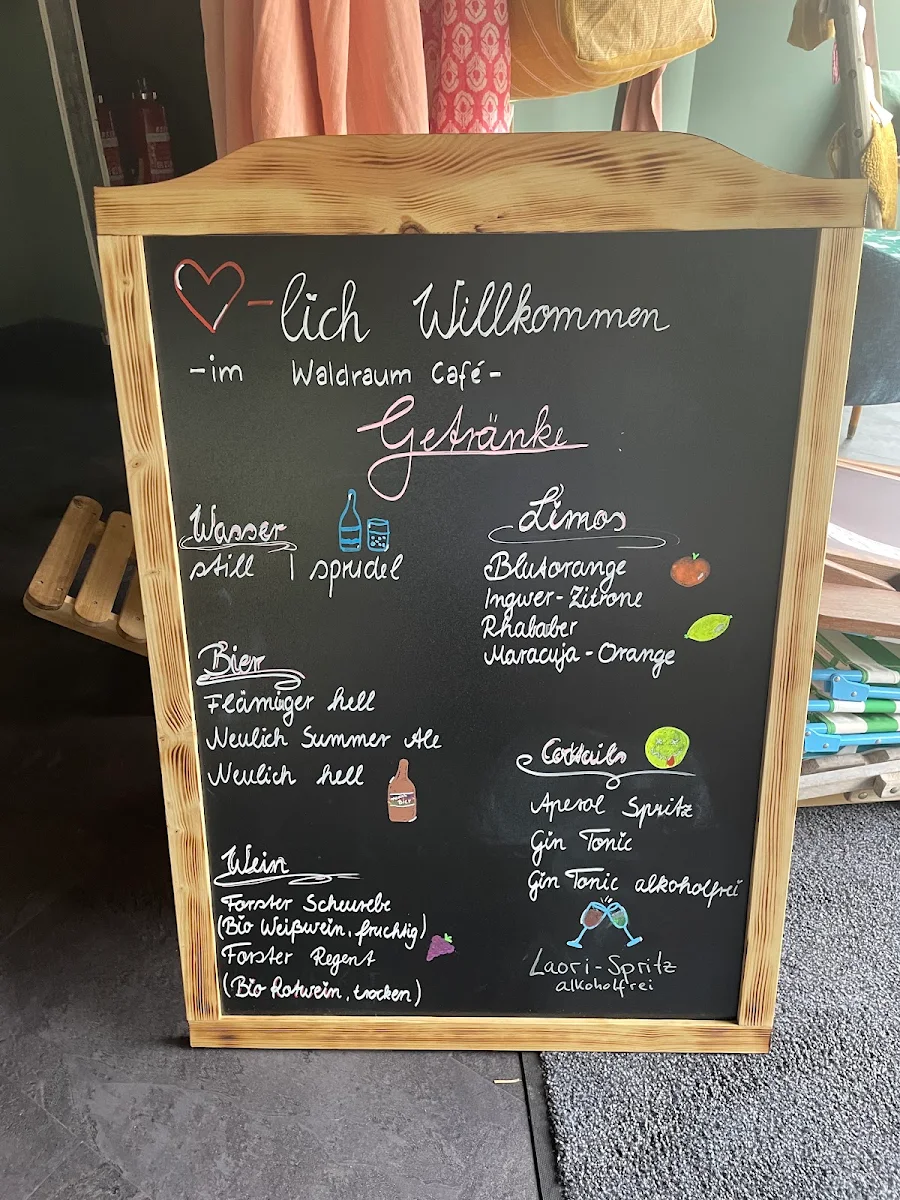 -lich Willkommen
-im Waldraum Café-
Getränke
Wasser
still | sprudel
Bier
Flämiger hell
Neulich Summer Ale
Neulich hell
Bier
Wein
Forster Scheurebe
(Bio Weißwein, fruchtig)
Forster Regent
(Bio Rotwein, trocken)
Limos
Blutorange
Ingwer-Zitrone
Rhababer
Maracuja-Orange
Cocktails
Aperol Spritz
Gin Tonic
Gin Tonic alkoholfrei
Laori-Spritz
alkoholfrei